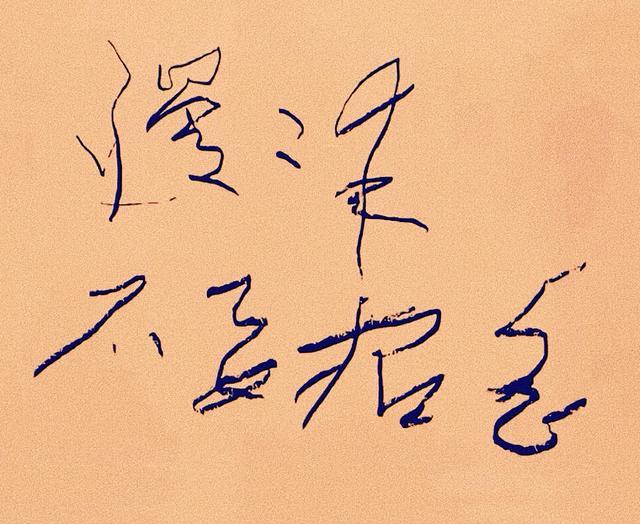 慢慢来
不要着急